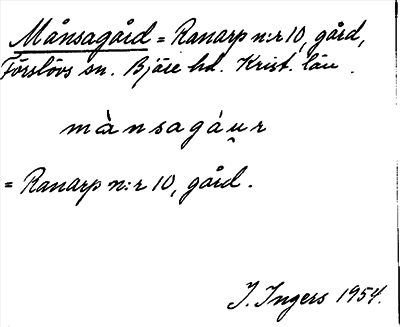 Månsagård = Ranarp n:r 10, gård,
Förslövs sn. Bjäre hd. Krist. län.
mànsagáu̯r
= Ranarp n:r 10, gård.
I. Ingers 1954.